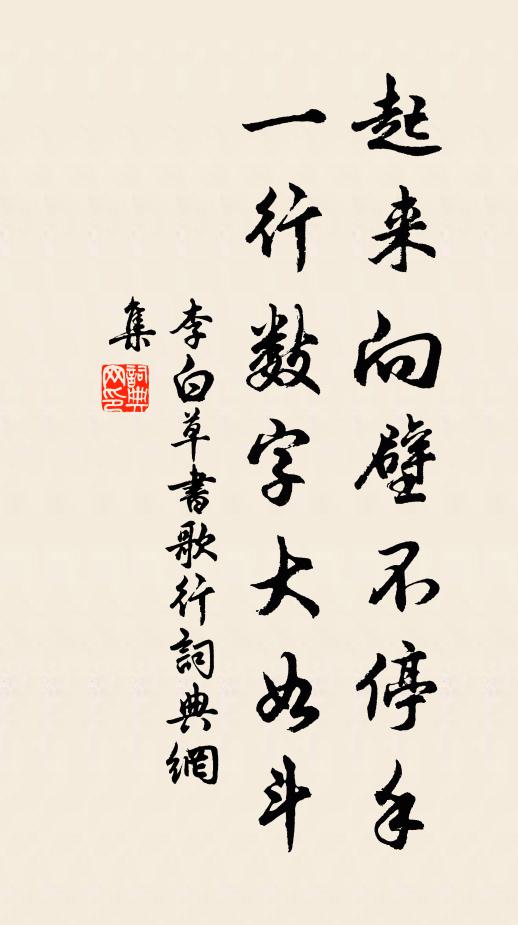 起来向壁不停手
一行数字大如斗
李白草書歌行詞典網
集
詞典网印